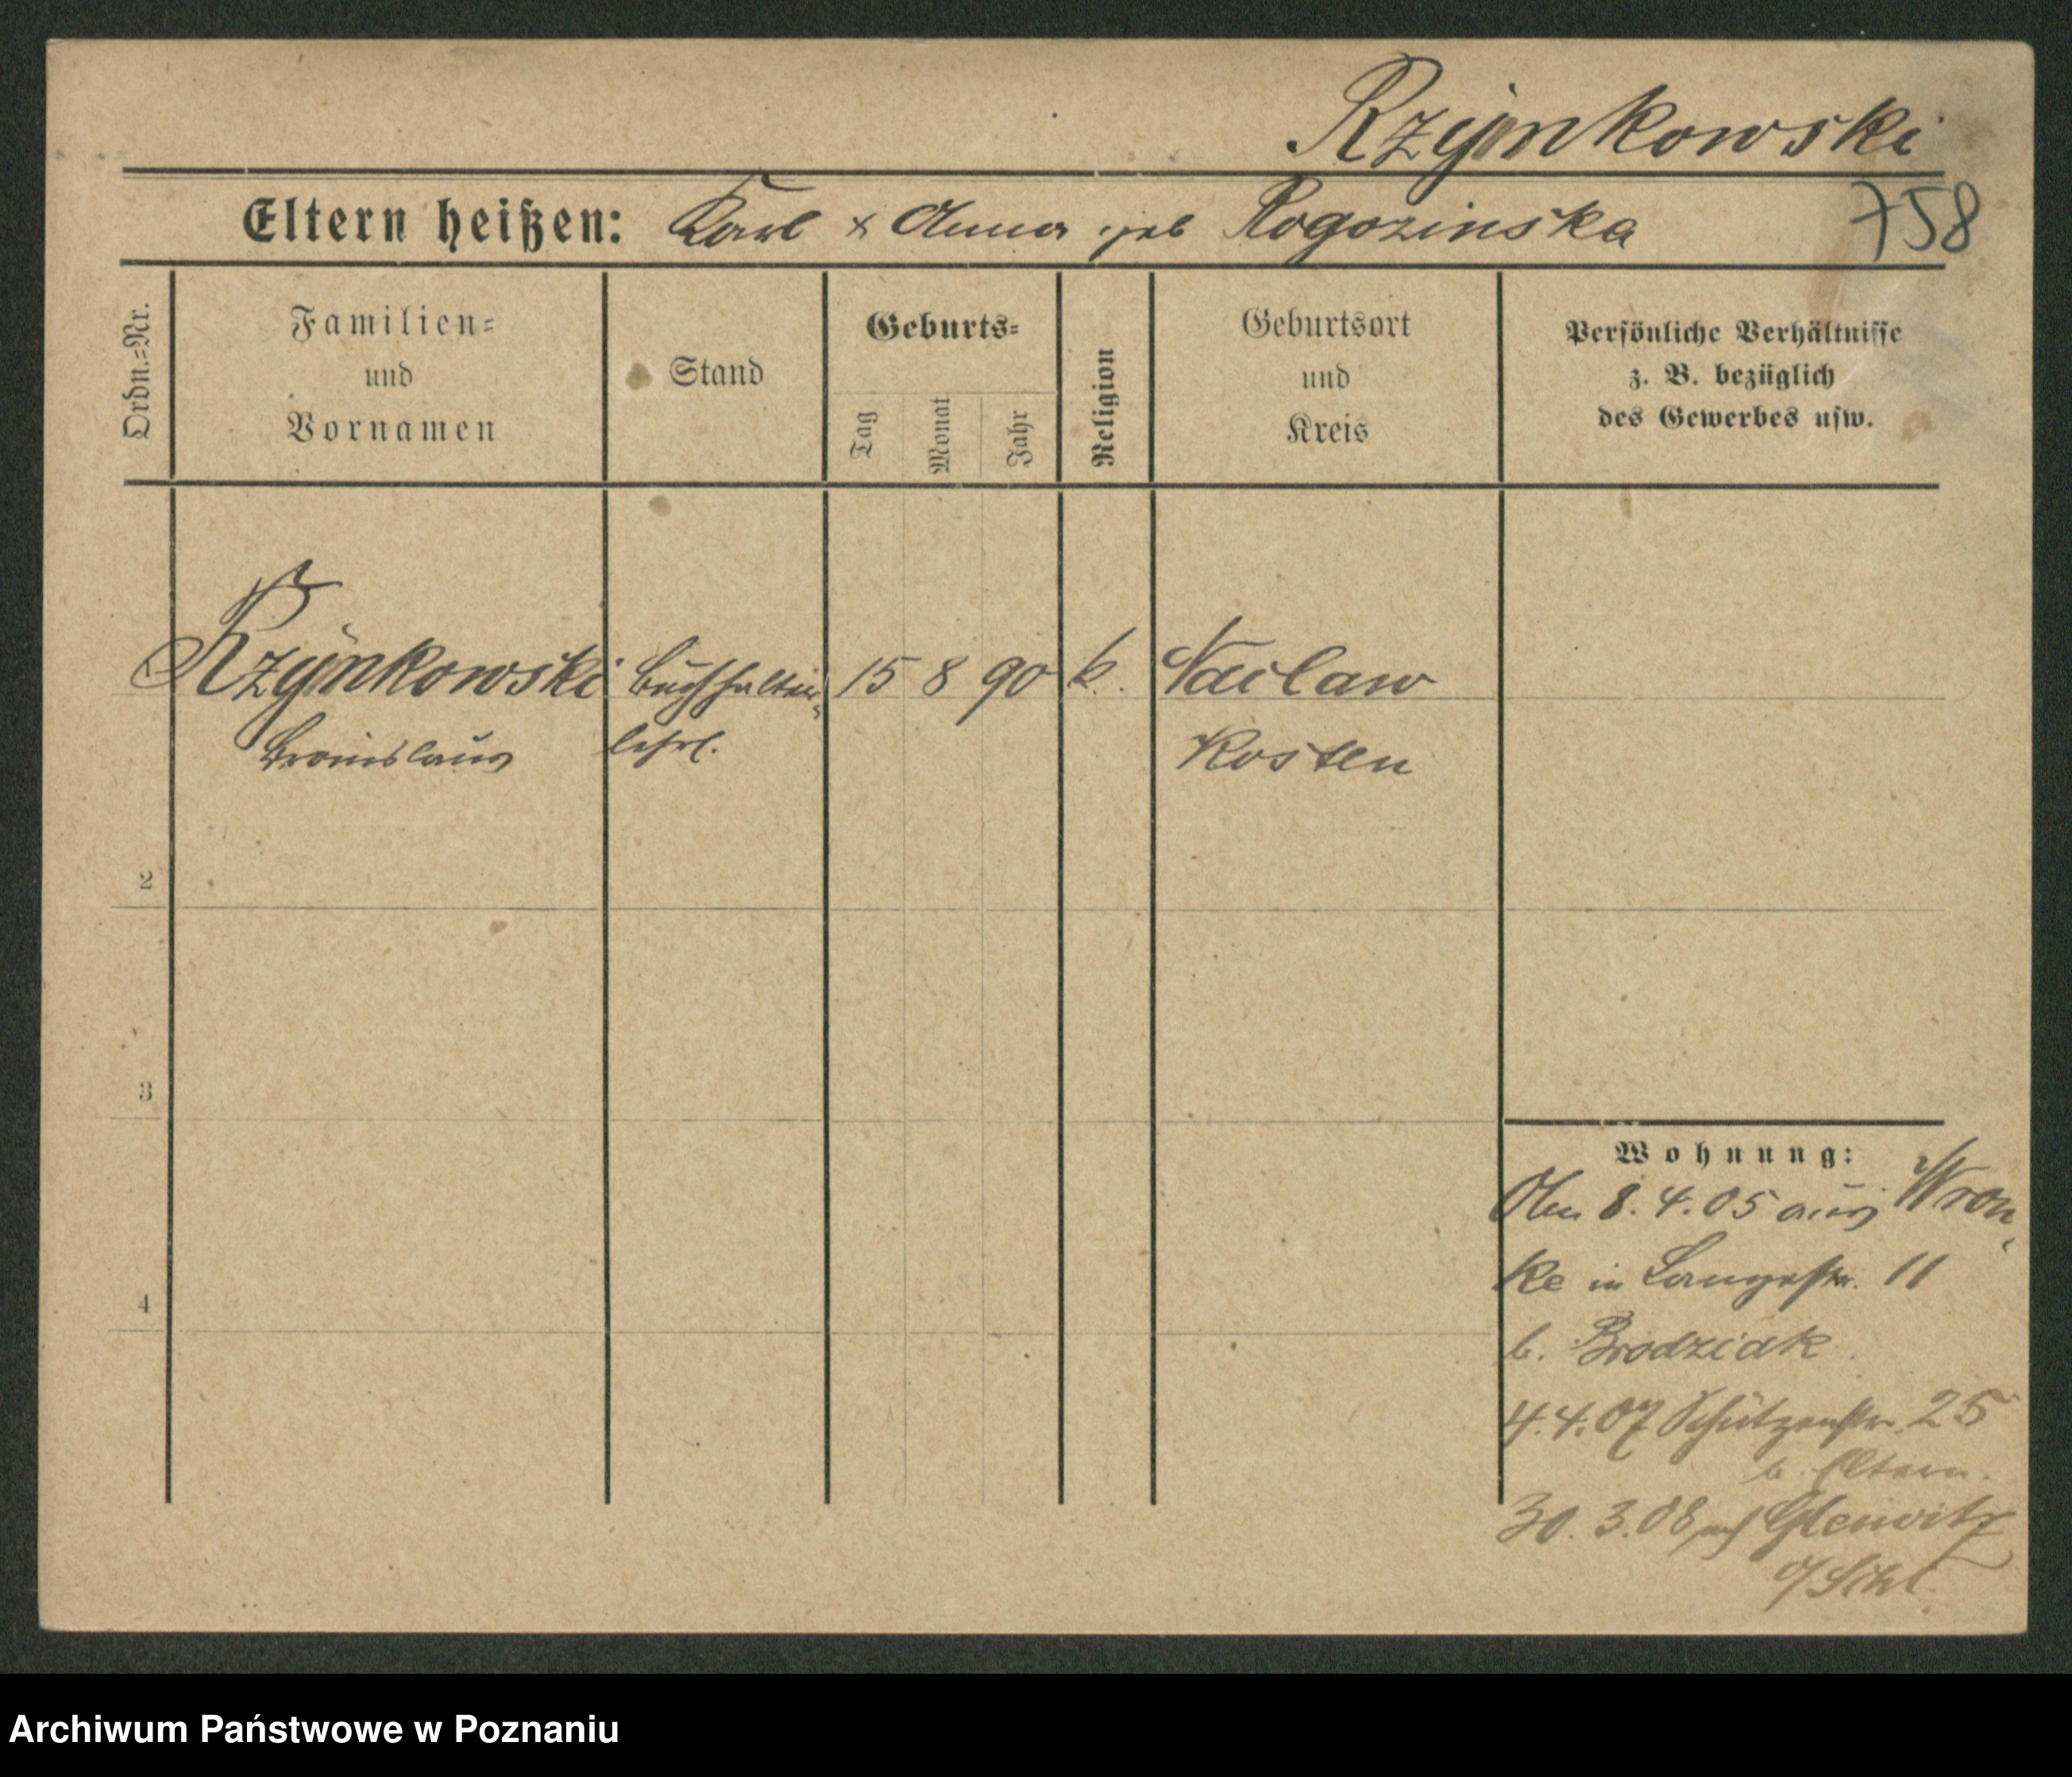 Rzÿnkowski
Eltern heißen: Karl & Anna geb Rogozinska 758
Ordn.=Nr.
Familien=
und
Vornamen
Stand
Geburts=
Tag
Monat
Jahr
Religion
Geburtsort
und
Kreis
Persönliche Verhältnisse
z. B. bezüglich
des Gewerbes usw.
Rzÿnkowski Buchhalter= 15 8 90 k. Naclaw
Bronislaus lehrl. Kosten
2
3
4
Wohnung:
Am 8.4.05 aus Wron-
ke in Langestr. 11
b. Brodziak.
4.4.07 Schützenstr. 25
b. Eltern.
30.3.08 nach Gleiwitz
o/Schl.
Archiwum Państwowe w Poznaniu